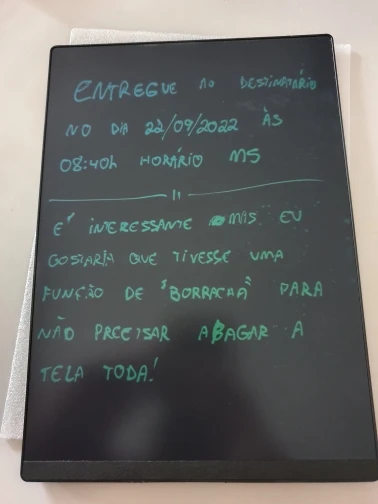 ENTREGUE AO DESTINATÁRIO
NO DIA 22/09/2022 ÀS
08:40h HORÁRIO MS
É INTERESSANTE MAS EU
GOSTARIA QUE TIVESSE UMA
FUNÇÃO DE "BORRACHA" PARA
NÃO PRECISAR ABAGAR A
TELA TODA!